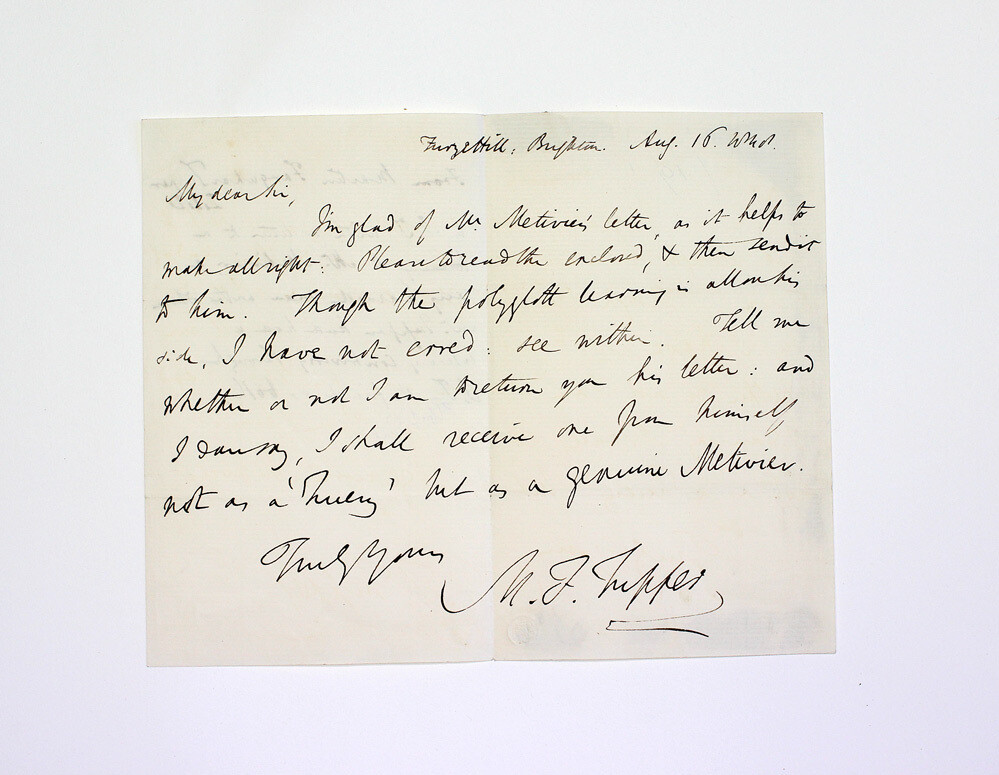 Furze Hill, Brighton. Aug. 16.
My dear Sir,
I'm glad of Mr. Metivier's letter, as it helps to
make all right: Please to read the enclosed, & then send it
to him. Though the polyglott learning is all on his
side, I have not erred: see within. Tell me
whether or not I am to return you his letter: and
I daresay, I shall receive one from himself
not as a '' but as a genuine Metivier.
Truly Yours
M. F. Tupper